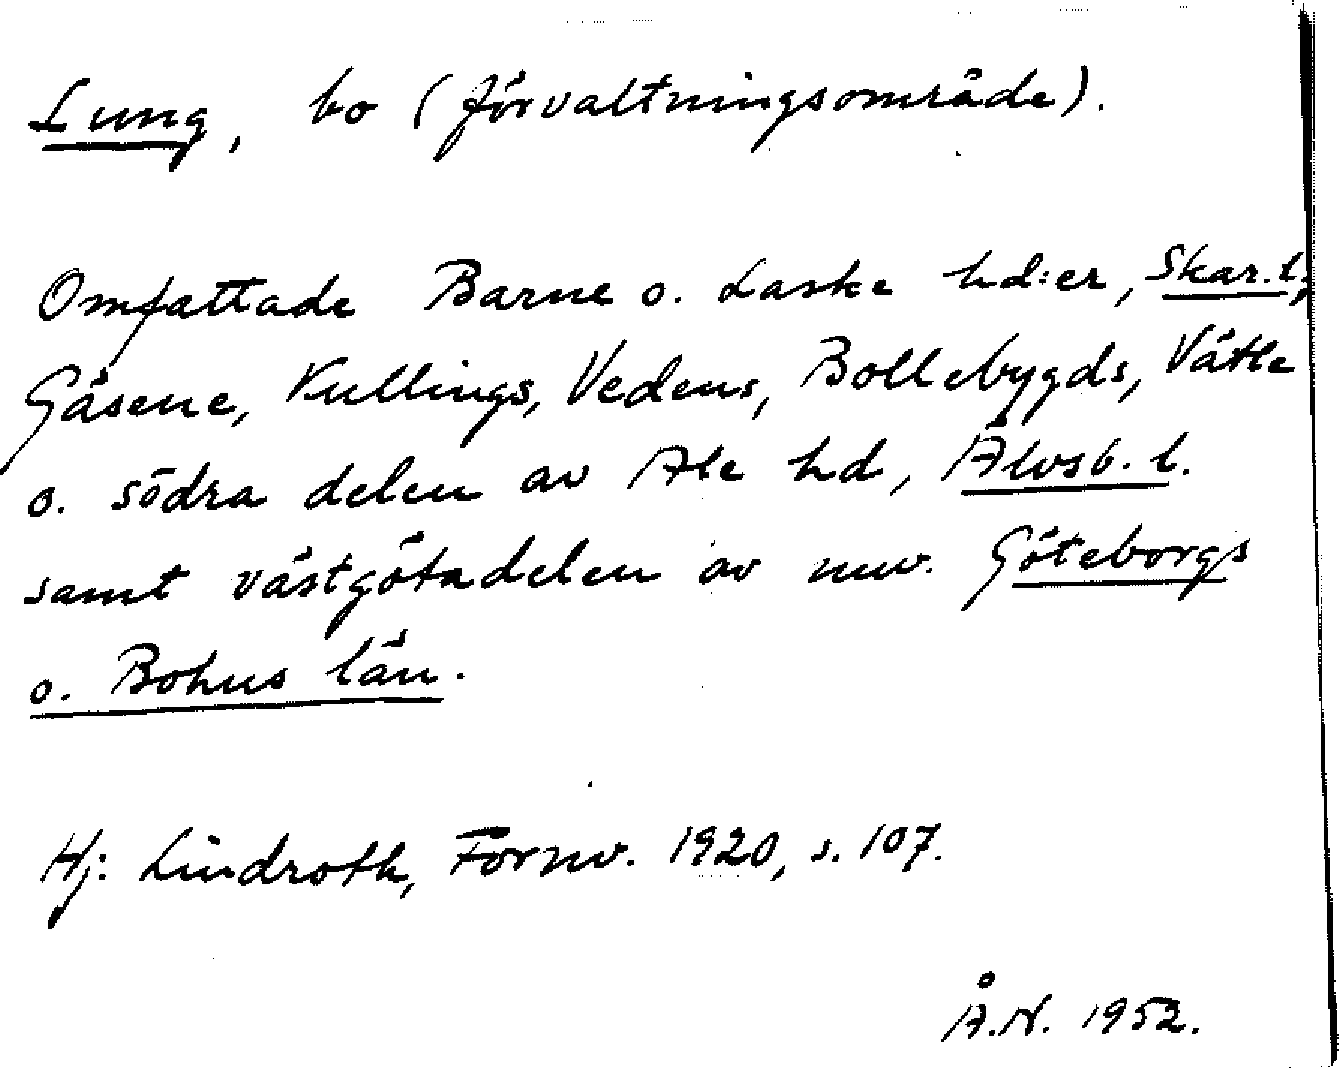 Lung, bo (förvaltningsområde).
Omfattade Barne o. Laske hd:er, Skar. l;
Gäsene, Kullings, Vedens, Bollebygds, Vättle
o. södra delen av Ale hd, Älvsb. l.
samt västgötadelen av nuv. Göteborgs
o. Bohus län.
Hj. Lindroth, Fornv. 1920, s. 107.
Å.N. 1952.